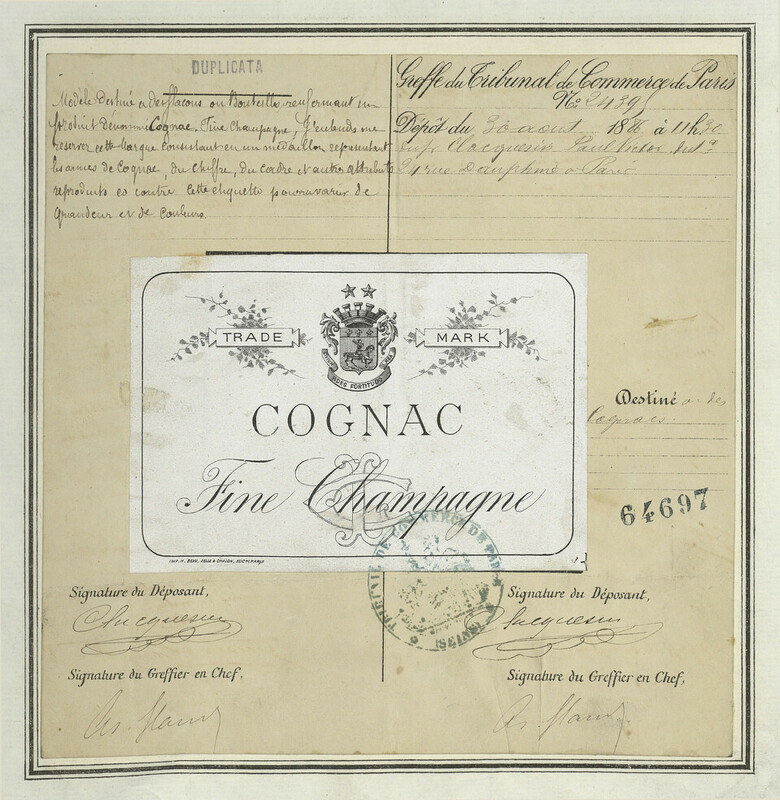 DUPLICATA
Modèle Destiné a des flacons ou Bouteilles renfermant un
produit Dénommé Cognac Fine Champagne, J'entends me
reserver cette Marque consistant en un médaillon représentant
les armes de Cognac, du Chiffre, du Cadre et autres attributs
reproduits ci contre Cette étiquette pourra varier de
grandeur et de couleurs.
Greffe du Tribunal de Commerce de Paris
No 24395
Dépôt du 30 aout 188 à 11h30
Paul Victor
rue Dauphine a Paris
TRADE MARK
FIDES FORTITUDO
COGNAC
Fine Champagne
Destiné a des
Cognacs
64697
TRIBUNAL DE COMMERCE DE PARIS
(SEINE)
Signature du Déposant,
Signature du Greffier en Chef,
Signature du Déposant,
Signature du Greffier en Chef,